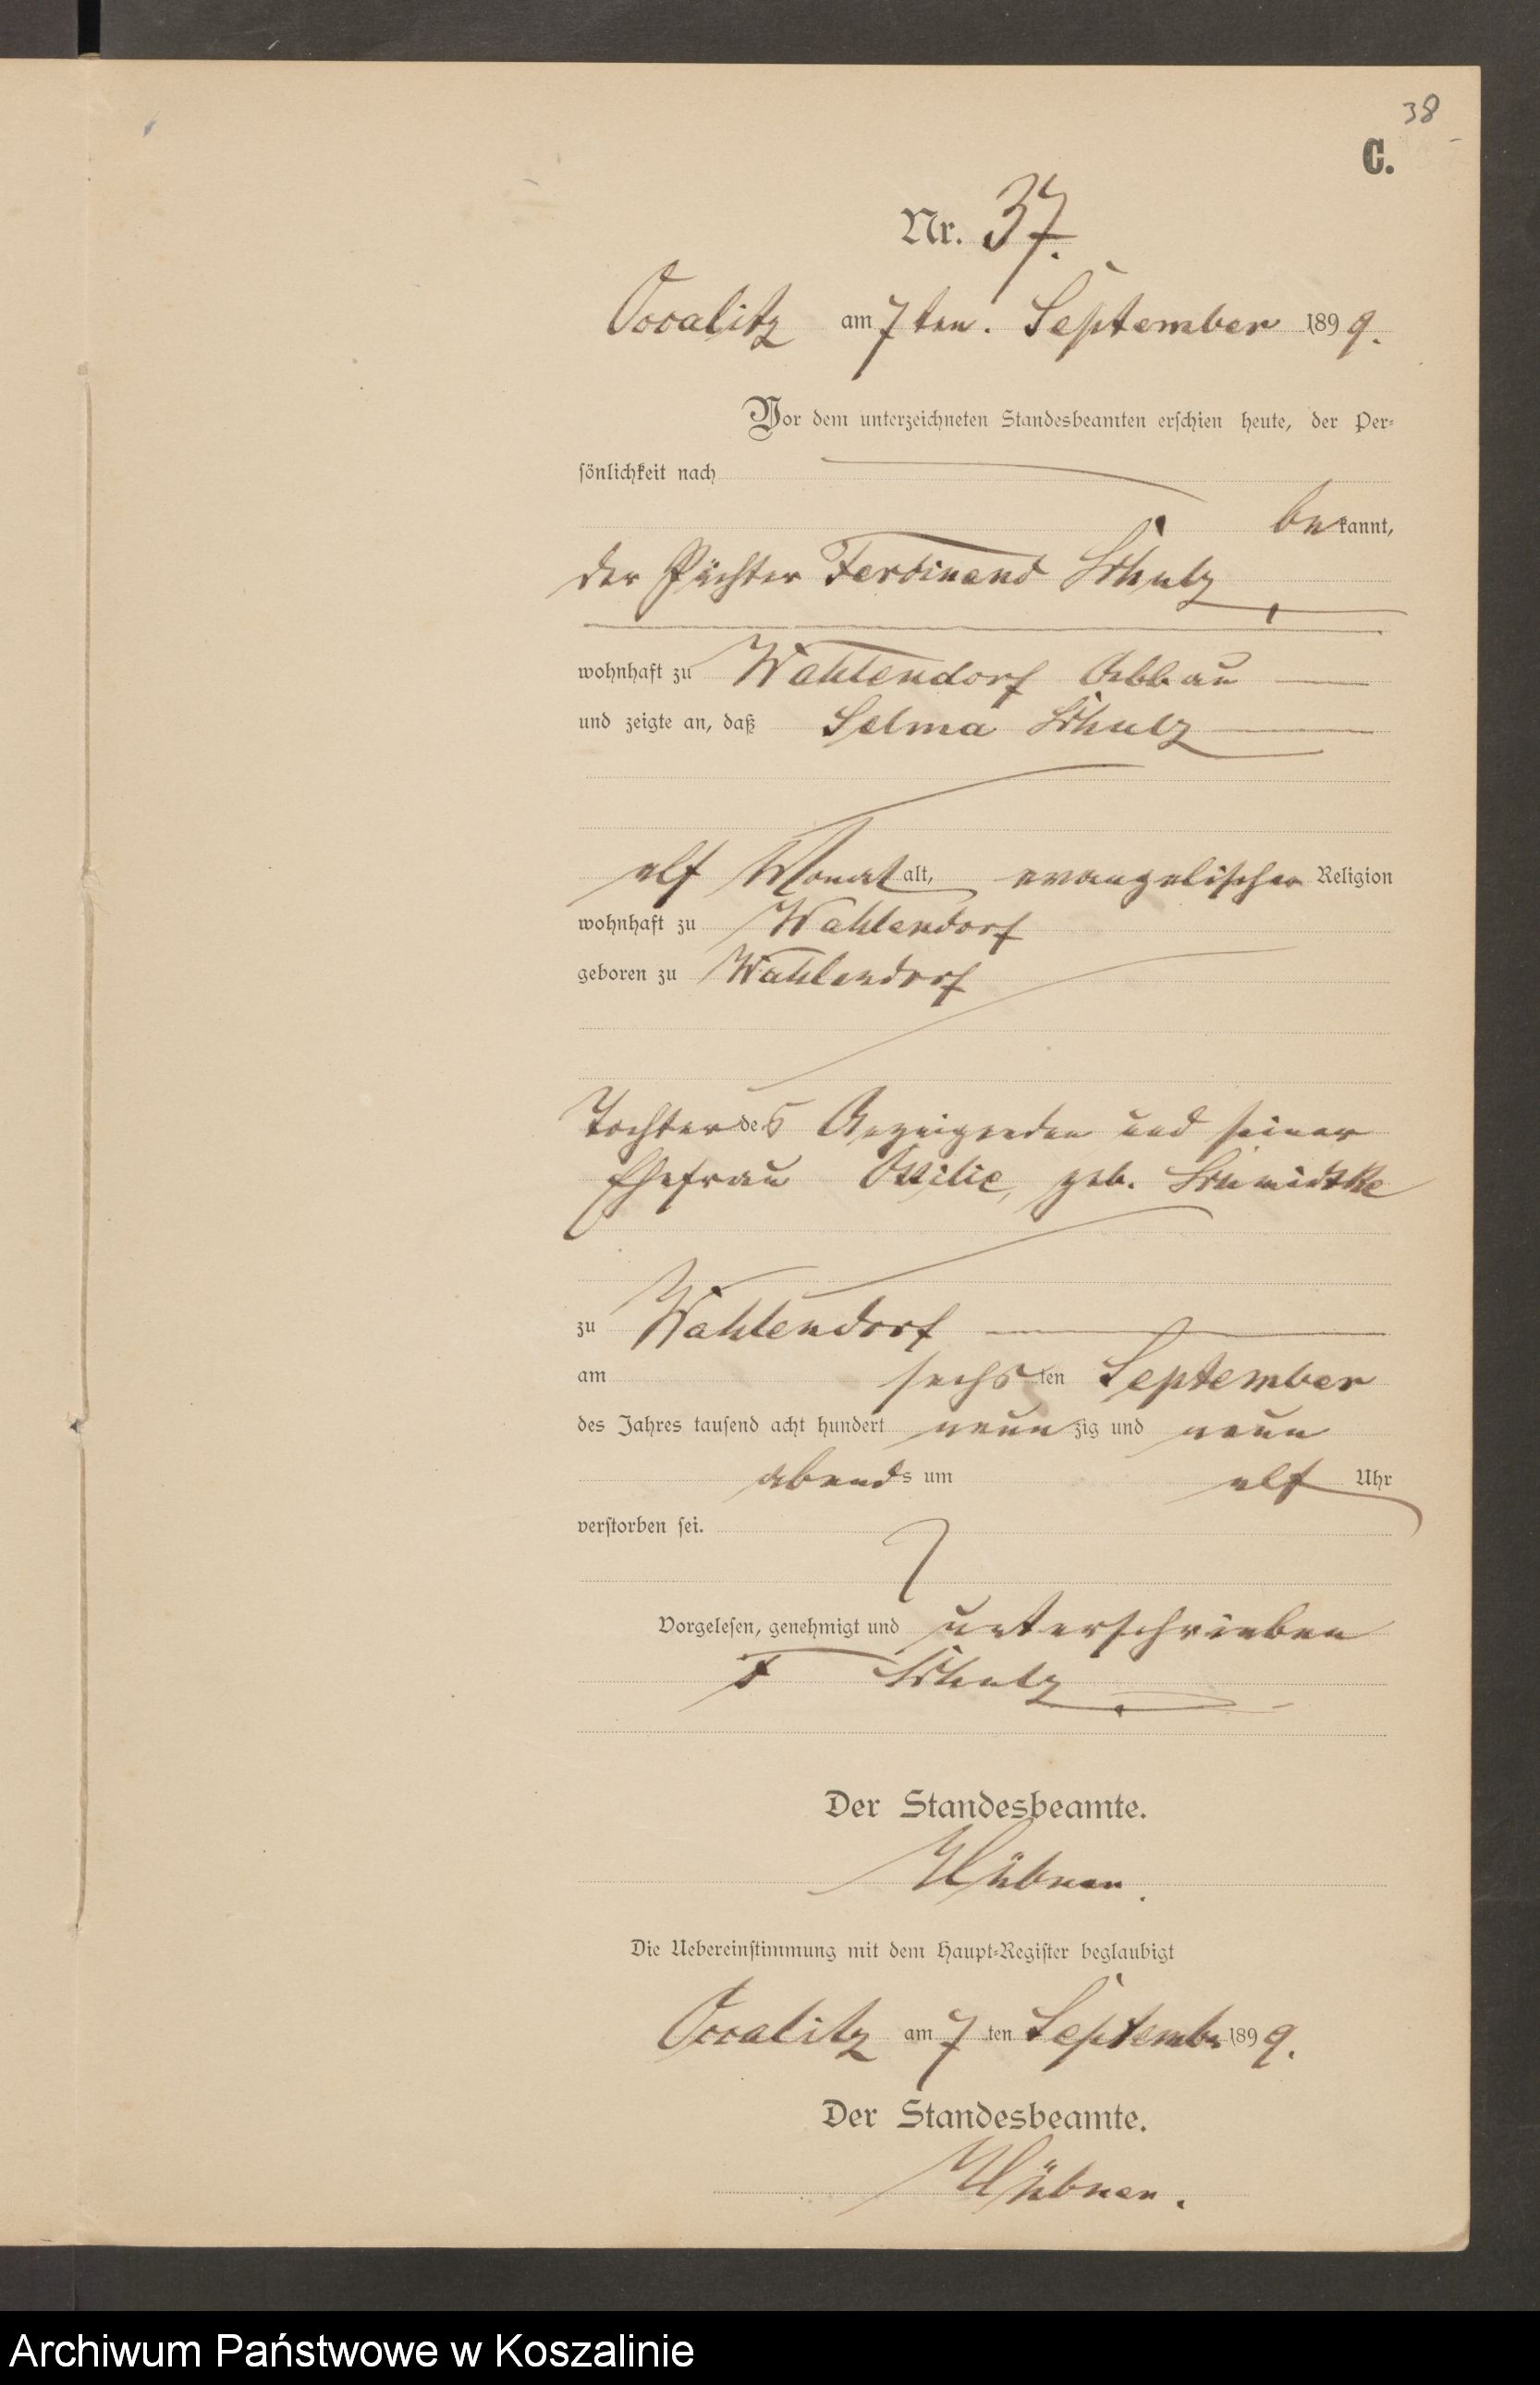 38
C.
Nr. 37.
Occalitz am 7ten. September 1899.
Vor dem unterzeichneten Standesbeamten erschien heute, der Per-
sönlichkeit nach
bekannt,
der Pächter Ferdinand Schulz
wohnhaft zu Wahlendorf Abbau
und zeigte an, daß Selma Schulz
elf Monat alt, evangelischer Religion
wohnhaft zu Wahlendorf
geboren zu Wahlendorf
Tochter des Anzeigenden und seiner
Ehefrau Ottilie, geb. Schmidtke
zu Wahlendorf
am sechsten September
des Jahres tausend acht hundert neunzig und neun
abends um elf Uhr
verstorben sei.
Vorgelesen, genehmigt und unterschrieben
F Schulz
Der Standesbeamte.
Hübner.
Die Uebereinstimmung mit dem Haupt-Register beglaubigt
Occalitz am 7ten Septembr 1899.
Der Standesbeamte.
Hübner.
Archiwum Państwowe w Koszalinie